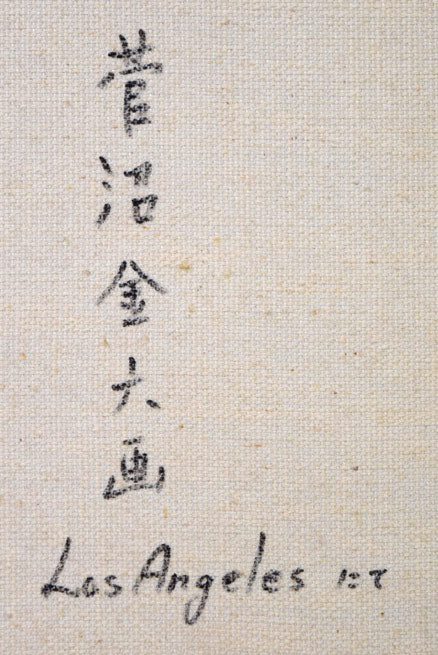 菅沼金六画
Los Angeles にて